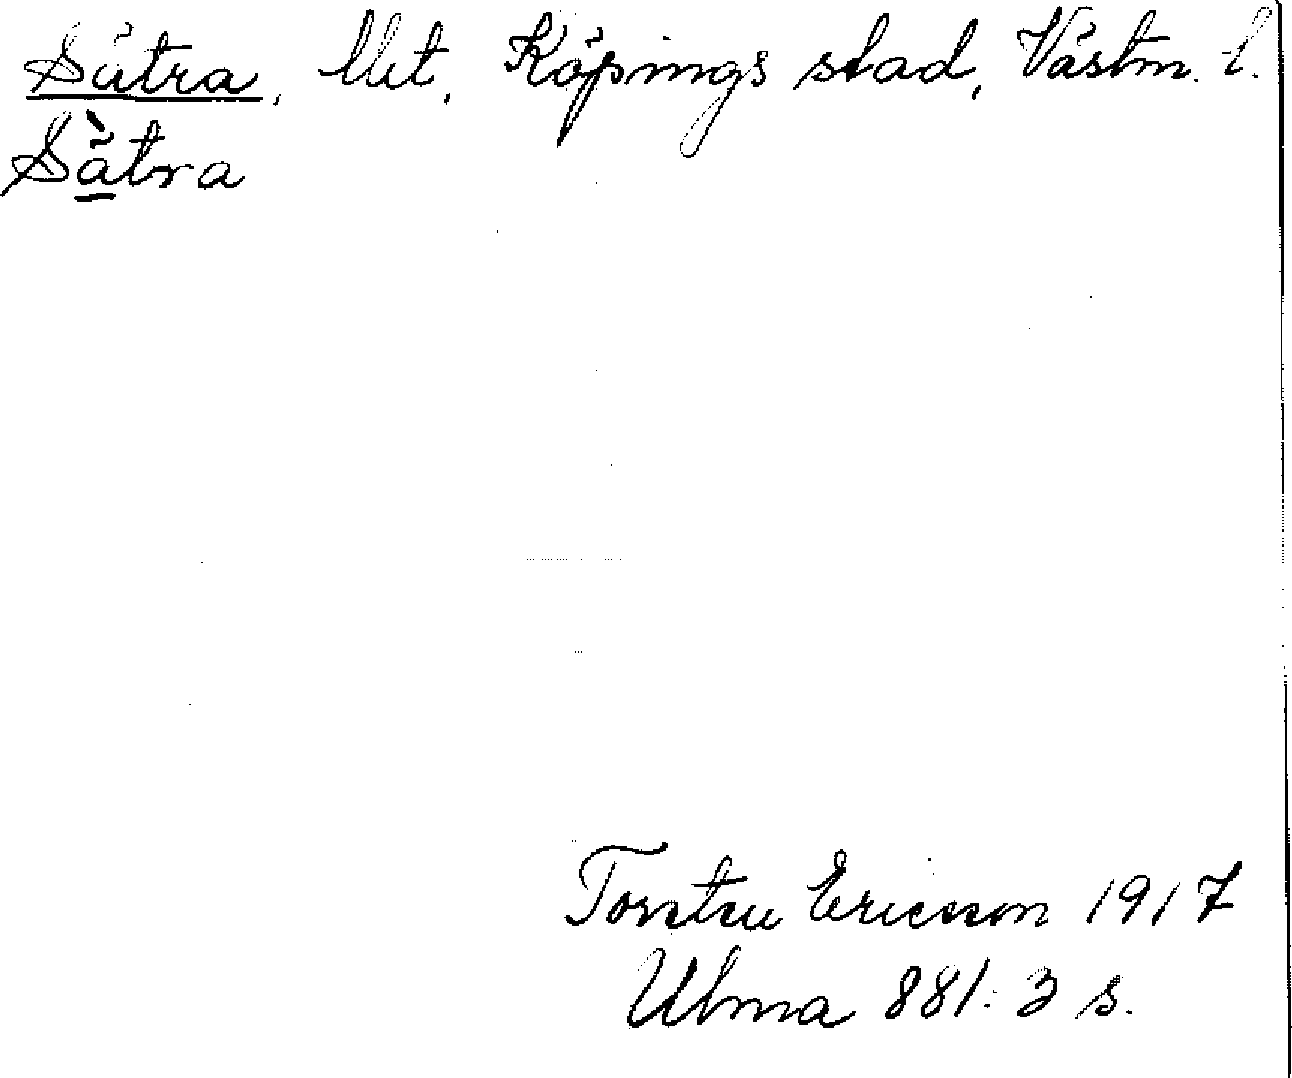 Sätra, Utt, Köpings stad, Västm. l.
Sàtra
Torsten Ericsson 1917
Ulma 881: 3 s.